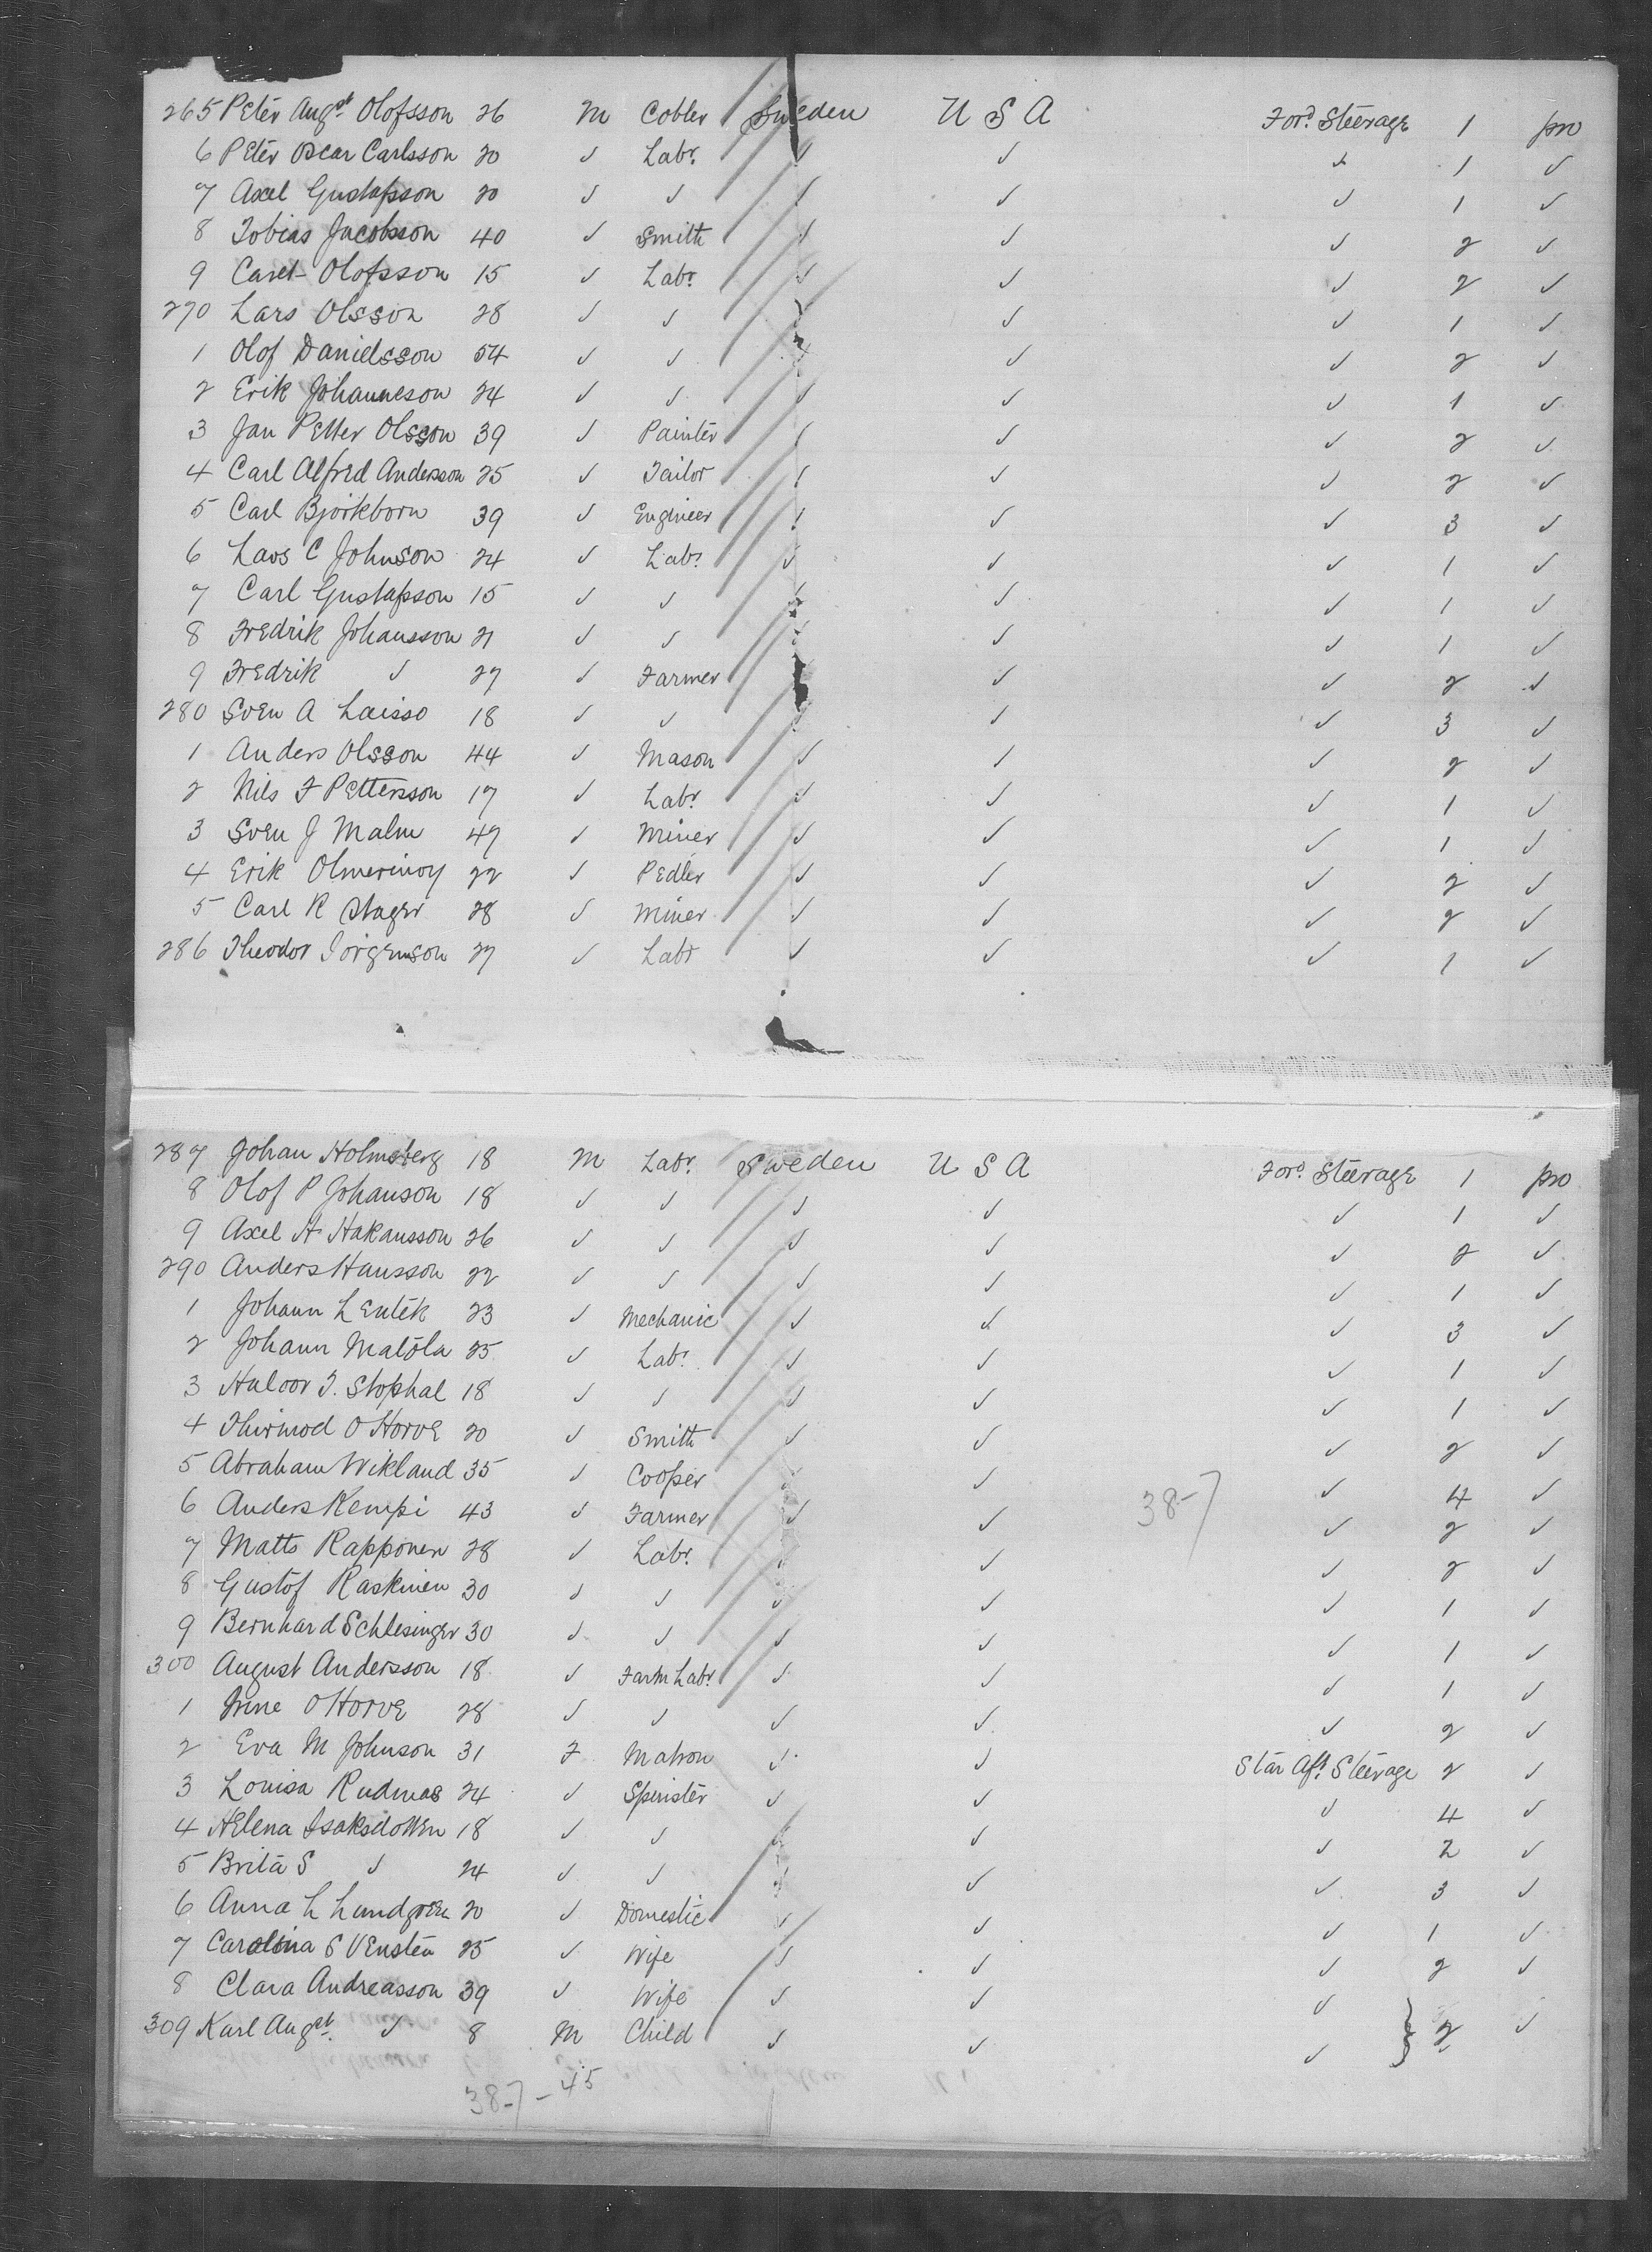 265 Peter Augst Olofsson 26 M Cobler Sweden U S A Ford. Steerage 1 pro
6 Peter Oscar Carlsson 20 ✓ Labr. ✓ ✓ ✓ 1 ✓
7 Axel Gustafsson 20 ✓ ✓ ✓ ✓ ✓ 1 ✓
8 Tobias Jacobsson 40 ✓ Smith ✓ ✓ ✓ 2 ✓
9 Olofsson 15 ✓ Labr. ✓ ✓ ✓ 2 ✓
270 Lars Olsson 28 ✓ ✓ ✓ ✓ ✓ 1 ✓
1 Olof Danielsson 54 ✓ ✓ ✓ ✓ ✓ 2 ✓
2 Erik Johanneson 24 ✓ ✓ ✓ ✓ ✓ 1 ✓
3 Jan Petter Olsson 39 ✓ Painter ✓ ✓ ✓ 2 ✓
4 Carl Alfred Andersson 25 ✓ Tailor ✓ ✓ ✓ 2 ✓
5 Carl Bjorkborn 39 ✓ Engineer ✓ ✓ ✓ 3 ✓
6 Lars C Johnson 24 ✓ Labr. ✓ ✓ ✓ 1 ✓
7 Carl Gustafsson 15 ✓ ✓ ✓ ✓ ✓ 1 ✓
8 Fredrik Johansson 21 ✓ ✓ ✓ ✓ ✓ 1 ✓
9 Fredrik ✓ 27 ✓ Farmer ✓ ✓ ✓ 2 ✓
280 Sven A Laisso 18 ✓ ✓ ✓ ✓ ✓ 3 ✓
1 Anders Olsson 44 ✓ Mason ✓ ✓ ✓ 2 ✓
2 Nils F Pettersson 17 ✓ Labr. ✓ ✓ ✓ 1 ✓
3 Sven J Malm 47 ✓ Miner ✓ ✓ ✓ 1 ✓
4 Erik 22 ✓ Pedler ✓ ✓ ✓ 2 ✓
5 Carl R Stager 28 ✓ Miner ✓ ✓ ✓ 2 ✓
286 Theodor Jorgenson 27 ✓ Labr ✓ ✓ ✓ 1 ✓
287 Johan Holmsberg 18 M Labr. Sweden U S A Ford. Steerage 1 pro
8 Olof P Johanson 18 ✓ ✓ ✓ ✓ ✓ 1 ✓
9 Axel A Hakansson 26 ✓ ✓ ✓ ✓ ✓ 2 ✓
290 Anders Hansson 22 ✓ ✓ ✓ ✓ ✓ 1 ✓
1 Johann Lentek 23 ✓ Mechanic ✓ ✓ ✓ 3 ✓
2 Johann Matola 25 ✓ Labr. ✓ ✓ ✓ 1 ✓
3 Haloor T. Stophal 18 ✓ ✓ ✓ ✓ ✓ 1 ✓
4 Thirmod O Horve 20 ✓ Smith ✓ ✓ ✓ 2 ✓
5 Abraham Wikland 35 ✓ Cooper ✓ ✓ ✓ 4 ✓
38-7
6 Anders Kempi 43 ✓ Farmer ✓ ✓ ✓ 2 ✓
7 Matts Rapponen 28 ✓ Labr. ✓ ✓ ✓ 2 ✓
8 Gustof Raskinen 30 ✓ ✓ ✓ ✓ ✓ 1 ✓
9 Bernhard Schlesinger 30 ✓ ✓ ✓ ✓ ✓ 1 ✓
300 August Andersson 18 ✓ Farm Labr. ✓ ✓ ✓ 1 ✓
1 O Horve 28 ✓ ✓ ✓ ✓ ✓ 2 ✓
2 Eva M Johnson 31 F Matron ✓ ✓ Star Aft. Steerage 2 ✓
3 Louisa Rudmas 24 ✓ Spinster ✓ ✓ ✓ 4 ✓
4 Helena 18 ✓ ✓ ✓ ✓ ✓ 2 ✓
5 Brita S ✓ 24 ✓ ✓ ✓ ✓ ✓ 3 ✓
6 Anna L Lundgren 20 ✓ Domestic ✓ ✓ ✓ 1 ✓
7 Carolina Svensten 25 ✓ Wife ✓ ✓ ✓ 2 ✓
8 Clara Andreasson 39 ✓ Wife ✓ ✓ ✓
309 Karl Augst. ✓ 8 M Child ✓ ✓ ✓ } 2 ✓
38-7-45